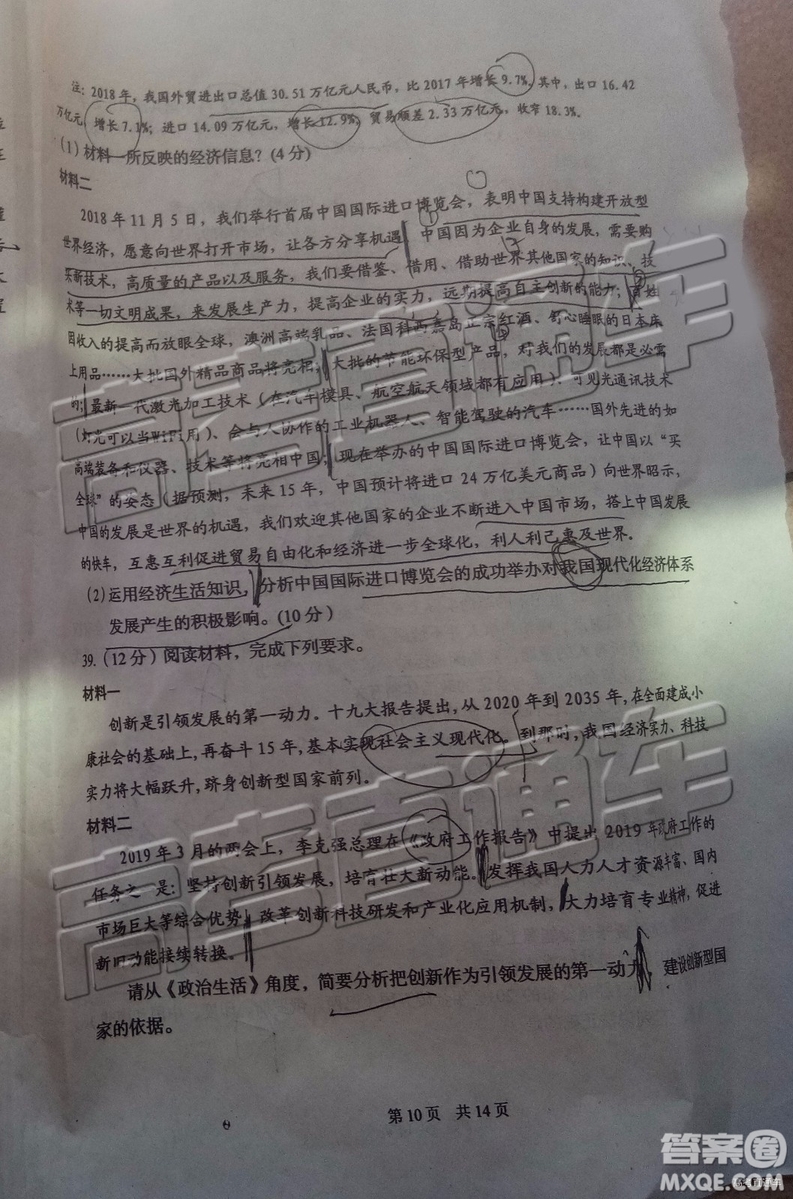 注：2018年，我国外贸进出口总值30.51万亿元人民币，比2017年增长9.7%。其中，出口16.42
万亿元，增长7.1%；进口14.09万亿元，增长12.9%；贸易顺差2.33万亿元，收窄18.3%。
(1)材料一所反映的经济信息？(4分)
材料二
2018年11月5日，我们举行首届中国国际进口博览会，表明中国支持构建开放型
世界经济，愿意向世界打开市场，让各方分享机遇 中国因为企业自身的发展，需要购
买新技术，高质量的产品以及服务，我们要借鉴、借用、借助世界其他国家的知识、技
术等一切文明成果，来发展生产力，提高企业的实力，远期提高自主创新的能力；百姓
因收入的提高而放眼全球，澳洲高端乳品、法国科西嘉岛正宗红酒、舒心睡眠的日本床
上用品……大批国外精品商品将亮相，大批的节能环保型产品，对我们的发展都是必需
的；最新一代激光加工技术（在汽车模具、航空航天领域都有应用）、可见光通讯技术
（灯光可以当WiFi用）、会与人协作的工业机器人、智能驾驶的汽车……国外先进的如
高端装备和仪器、技术等将亮相中国；现在举办的中国国际进口博览会，让中国以“买
全球”的姿态（据预测，未来15年，中国预计将进口24万亿美元商品）向世界昭示，
中国的发展是世界的机遇，我们欢迎其他国家的企业不断进入中国市场，搭上中国发展
的快车，互惠互利促进贸易自由化和经济进一步全球化，利人利己惠及世界。
(2)运用经济生活知识，分析中国国际进口博览会的成功举办对我国现代化经济体系
发展产生的积极影响。(10分)
39.(12分)阅读材料，完成下列要求。
材料一
创新是引领发展的第一动力。十九大报告提出，从2020年到2035年，在全面建成小
康社会的基础上，再奋斗15年，基本实现社会主义现代化。到那时，我国经济实力、科技
实力将大幅跃升，跻身创新型国家前列。
材料二
2019年3月的两会上，李克强总理在《政府工作报告》中提出2019年政府工作的
任务之一是：坚持创新引领发展，培育壮大新动能。发挥我国人力人才资源丰富、国内
市场巨大等综合优势，改革创新科技研发和产业化应用机制，大力培育专业精神，促进
新旧动能接续转换。
请从《政治生活》角度，简要分析把创新作为引领发展的第一动力，建设创新型国
家的依据。
第10页 共14页
高考直通车
高考直通车
答案圈
MXQE.COM